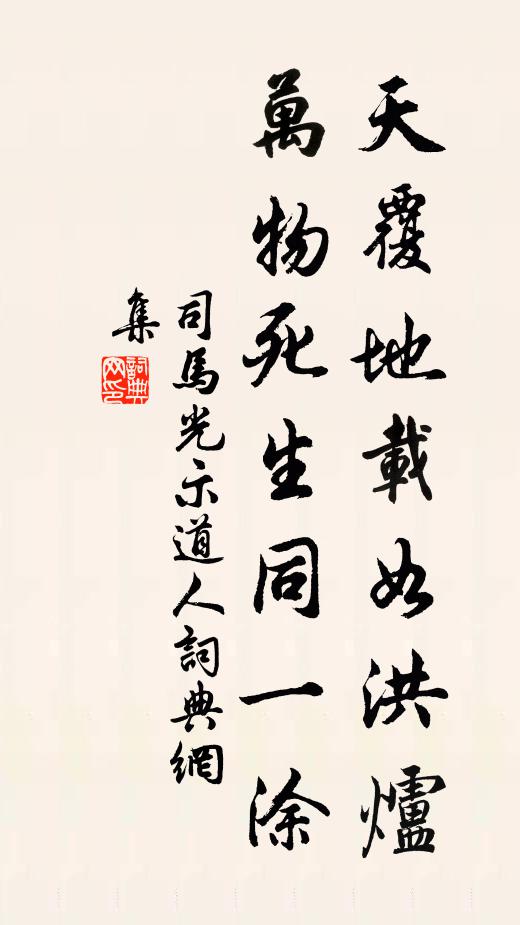 天覆地載如洪爐
萬物死生同一涂
司馬光示道人詞典網
集
詞典
网印